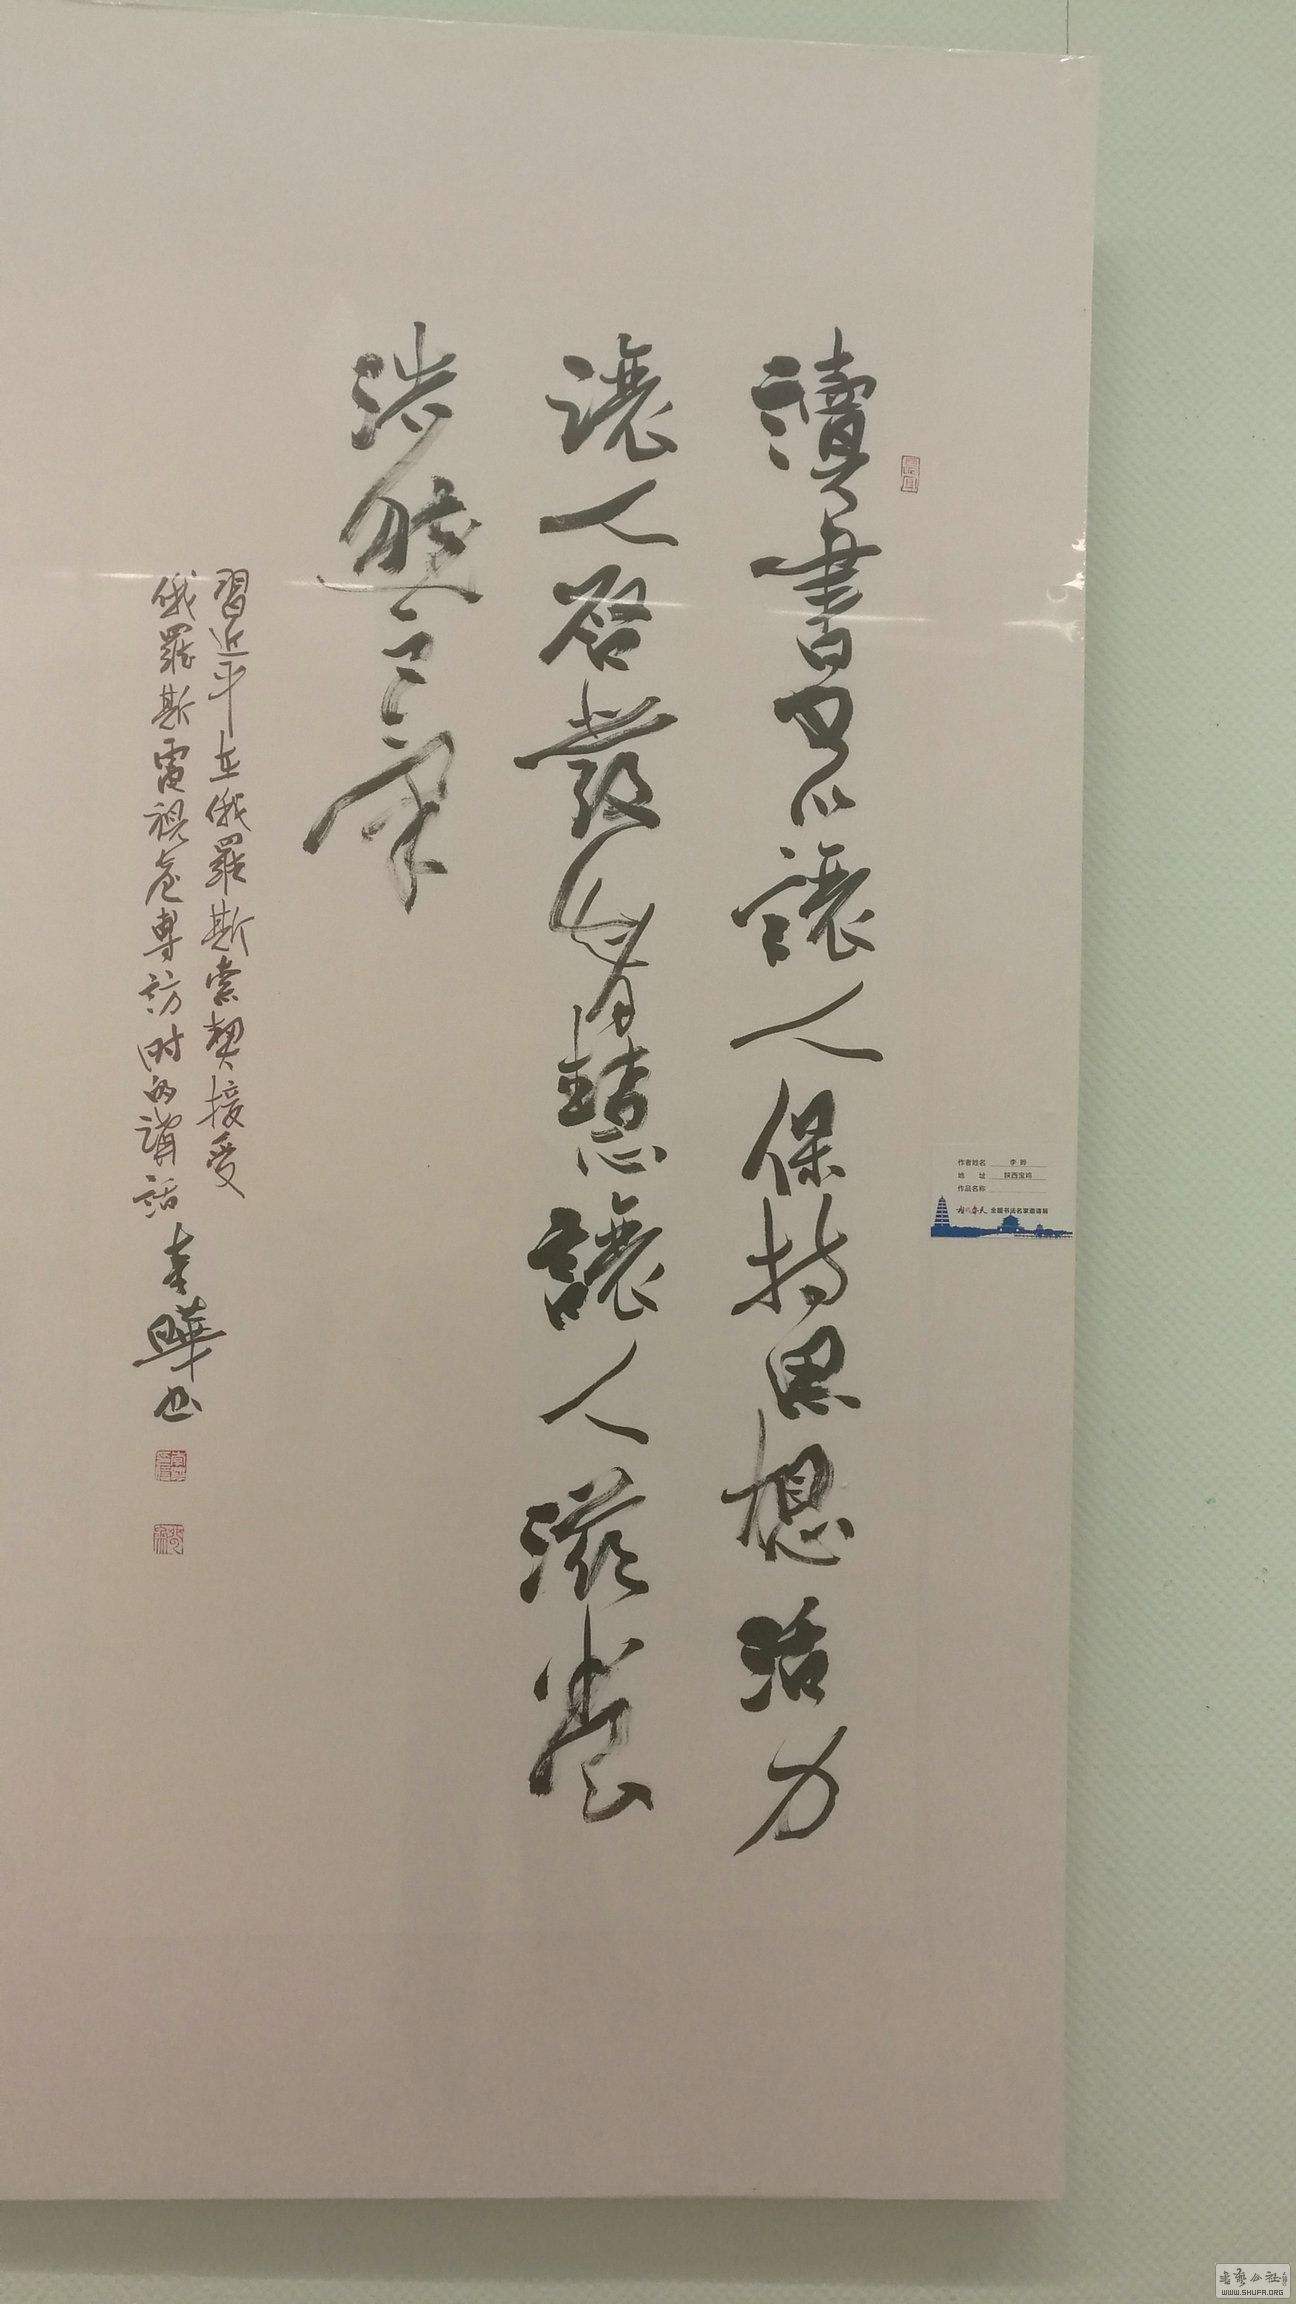 讀書可以讓人保持思想活力
讓人启發智慧讓人滋養
浩然之氣
習近平在俄羅斯索契接受
俄羅斯電視臺專訪时的講話 李曄书
作者姓名 李 晔
地 址 陕西宝鸡
作品名称
全国书法名家邀请展
书艺公社
WWW.SHUFA.ORG